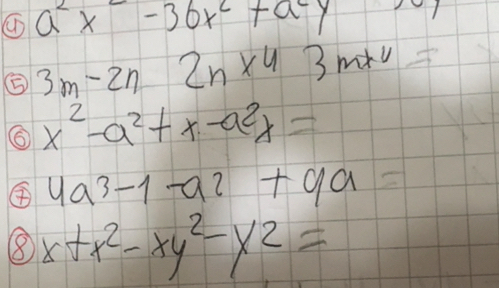 ④ a² x² - 36x² + a² y
⑤ 3m - 2n 2n x 4 3 m x 4 =
⑥ x² - a² + x - a²x =
⑦ 4a3 - 1 - a2 + 9a =
⑧ x + x² - xy² - y2 =